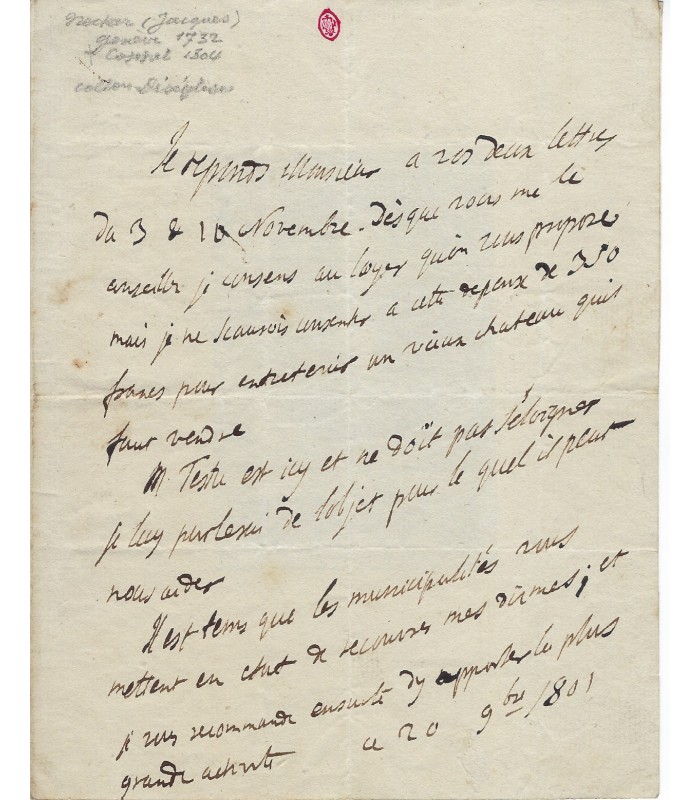 Necker (Jacques)
genève 1732
Coppet 1804
Je reponds Monsieur a vos deux lettres
du 3 & 10 Novembre. Dès que vous me le
conseillez je consens au loyer qu'on vous propose
mais je ne scaurois consentir a cette depense de 350
francs pour entretenir un vieux chateau qu'il
faut vendre
M Teste est icy et ne doit pas s'éloigner
je luy parlerai de l'objet pour le quel il peut
nous aider
Il est tems que les municipalités vous
mettent en etat de recouvrer mes dixmes; et
je vous recommande ensuite d'y apporter la plus
grande activité ce 20 9bre 1801